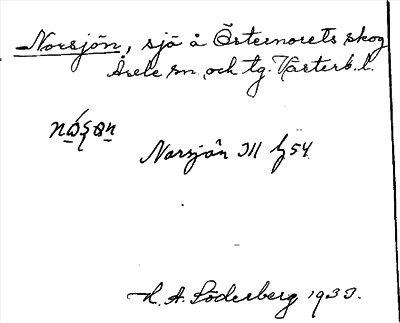 Norsjön, sjö å Östernorets skog
Åsele sn. och tg. Västerb. l.
Norsjön III b 54
H. A. Söderberg 1930.